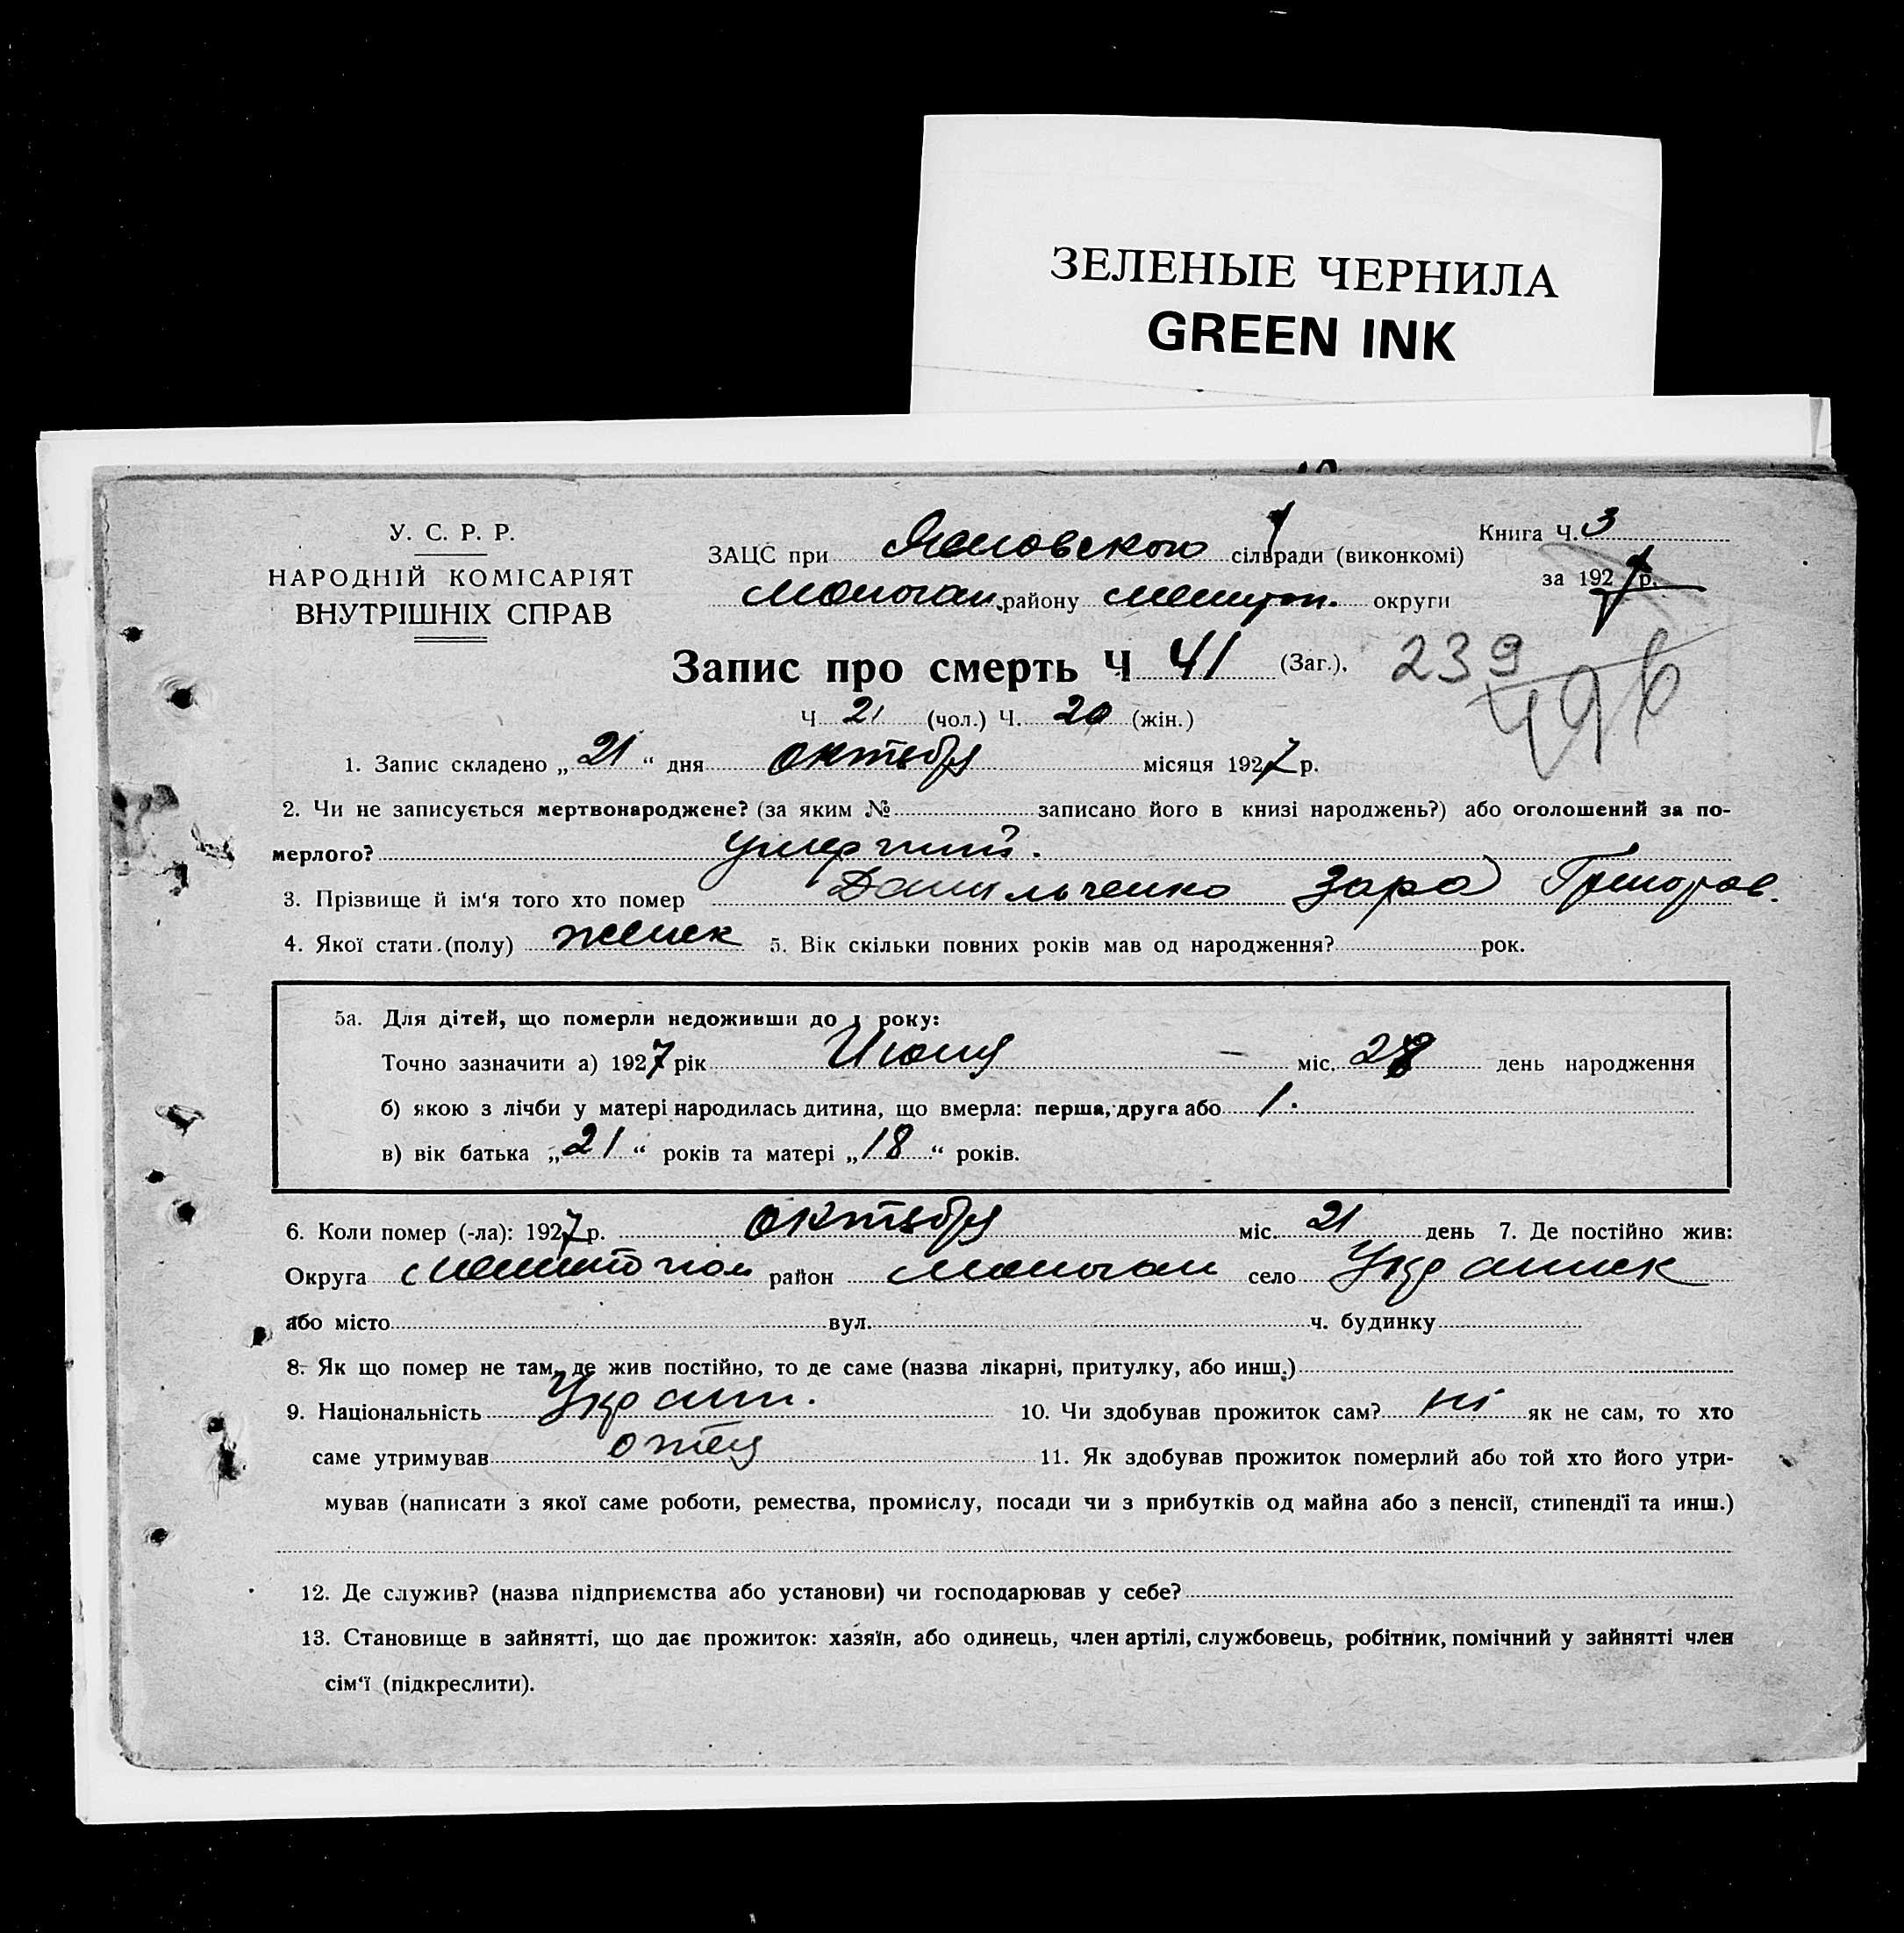 ЗЕЛЕНЫЕ ЧЕРНИЛА
GREEN INK
У. С. Р. Р.
НАРОДНІЙ КОМІСАРІЯТ
ВНУТРІШНІХ СПРАВ
ЗАЦС при сільради (виконкомі)
району округи
Книга Ч. 3
за 1927 р.
Запис про смерть Ч 41 (Заг.),
239
496
Ч 21 (чол.) Ч. 20 (жін.)
1. Запис складено „21“ дня октября місяця 1927 р.
2. Чи не записується мертвонароджене? (за яким № записано його в книзі народжень?) або оголошений за по-
мерлого? умерший.
3. Прізвище й ім‘я того хто помер Данильченко Зара Григоров.
4. Якої стати (полу) женск 5. Вік скільки повних років мав од народження? рок.
5а. Для дітей, що померли недоживши до 1 року:
Точно зазначити а) 1927 рік міс. 28 день народження
б) якою з лічби у матері народилась дитина, що вмерла: перша, друга або 1.
в) вік батька „21“ років та матері „18“ років.
6. Коли помер (-ла): 1927 р. октября міс. 21 день 7. Де постійно жив:
Округа район село Украинск
або місто вул. ч. будинку
8. Як що помер не там, де жив постійно, то де саме (назва лікарні, притулку, або инш.)
9. Національність Украин. 10. Чи здобував прожиток сам? ні як не сам, то хто
саме утримував отец 11. Як здобував прожиток померлий або той хто його утри-
мував (написати з якої саме роботи, ремества, промислу, посади чи з прибутків од майна або з пенсії, стипендії та инш.)
12. Де служив? (назва підприємства або установи) чи господарював у себе?
13. Становище в зайнятті, що дає прожиток: хазяїн, або одинець, член артілі, службовець, робітник, помічний у зайнятті член
сім‘ї (підкреслити).